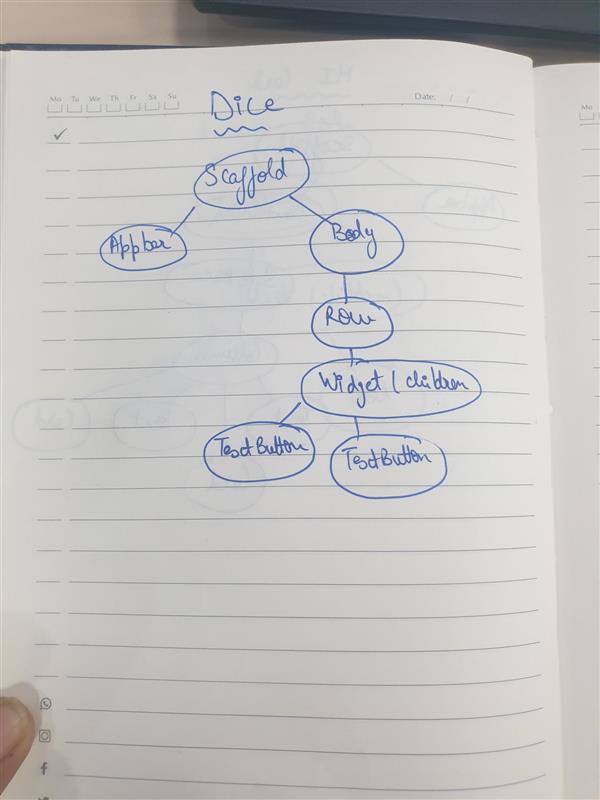 Mo Tu We Th Fr Sa Su
Date: / /
Dice
Scaffold
Appbar
Body
Row
Widget / children
TextButton
TextButton
Mo